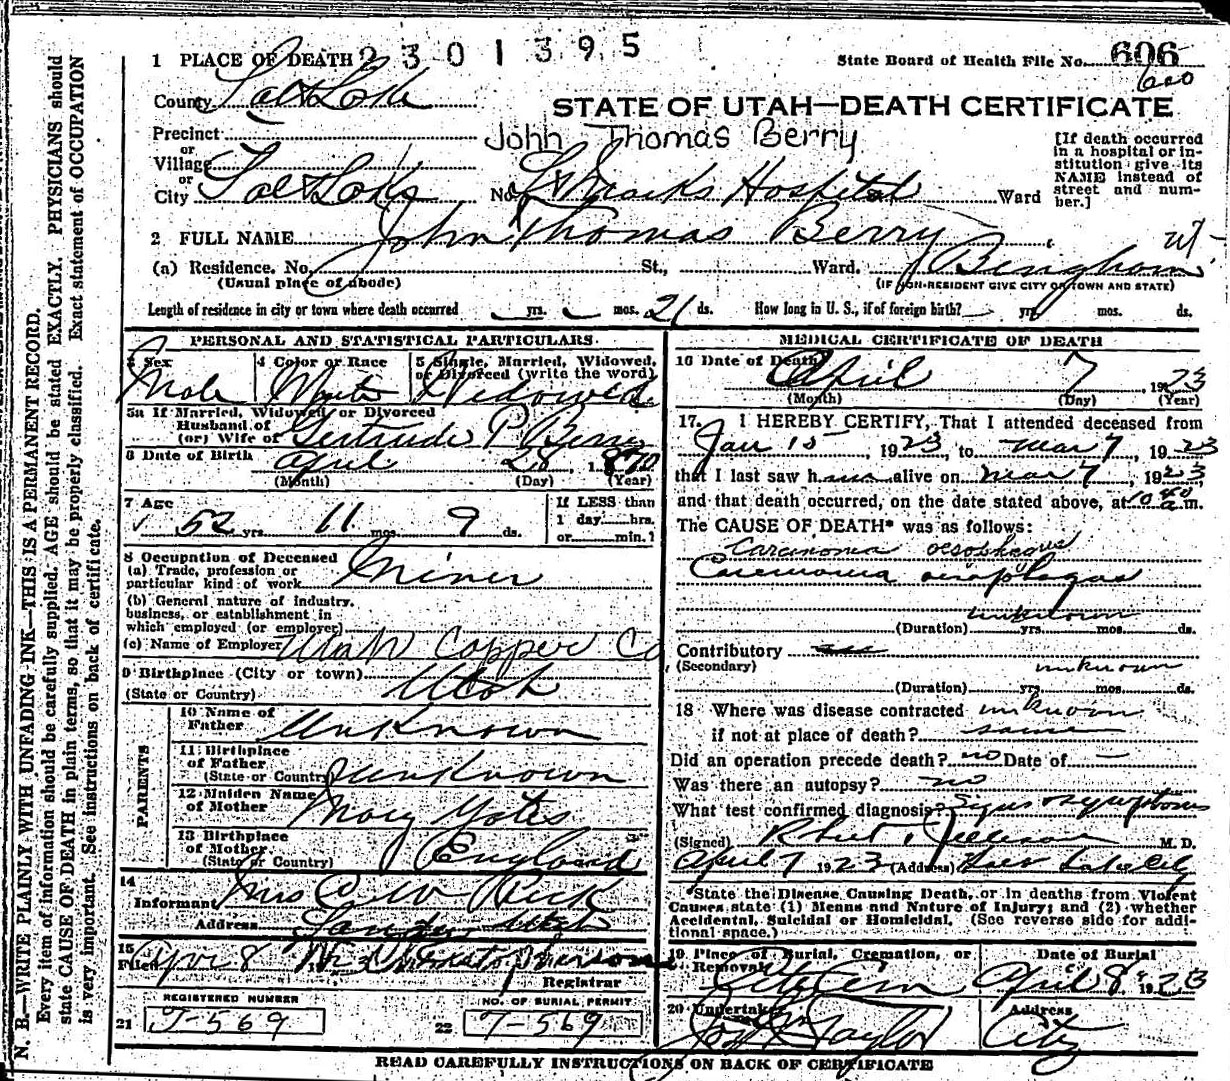 2301395
1 PLACE OF DEATH
State Board of Health File No. 606
600
County Salt Lake
STATE OF UTAH—DEATH CERTIFICATE
Precinct
John Thomas Berry
or
Village
or
City Salt Lake No. St Marks Hospital Ward
[If death occurred
in a hospital or in-
stitution give its
NAME instead of
street and num-
ber.]
2 FULL NAME John Thomas Berry
(a) Residence. No. St., Ward. Bingham Ut
(Usual place of abode)
(IF NON-RESIDENT GIVE CITY OR TOWN AND STATE)
Length of residence in city or town where death occurred yrs. mos. 21 ds. How long in U. S., if of foreign birth? yrs. mos. ds.
PERSONAL AND STATISTICAL PARTICULARS.
3 Sex 4 Color or Race 5 Single, Married, Widowed,
or Divorced (write the word)
Male White Widowed
5a If Married, Widowed or Divorced
Husband of
(or) Wife of Gertrude P Berry
6 Date of Birth April 28, 1870
(Month) (Day) (Year)
7 Age
52 yrs. 11 mos. 9 ds.
If LESS than
1 day hrs.
or min.?
8 Occupation of Deceased
(a) Trade, profession or
particular kind of work Miner
(b) General nature of industry,
business, or establishment in
which employed (or employer)
(c) Name of Employer Utah Copper Co
9 Birthplace (City or town)
(State or Country) Utah
PARENTS
10 Name of
Father Unknown
11 Birthplace
of Father
(State or Country) Unknown
12 Maiden Name
of Mother Mary Yates
13 Birthplace
of Mother
(State or Country) England
14
Informant Mrs C. W.
Address Sandy Utah
15
Filed Apr 8
Registrar
REGISTERED NUMBER
21 T-569
NO. OF BURIAL PERMIT
22 T-569
MEDICAL CERTIFICATE OF DEATH
16 Date of Death
April 7, 1923
(Month) (Day) (Year)
17. I HEREBY CERTIFY, That I attended deceased from
Jan 15, 1923, to Mar 7, 1923
that I last saw him alive on Mar 7, 1923
and that death occurred, on the date stated above, at 10 40 a m.
The CAUSE OF DEATH* was as follows:
Carcinoma oesophagus
Carcinoma oesophagus
unknown
(Duration) yrs. mos. ds.
Contributory
(Secondary) unknown
(Duration) yrs. mos. ds.
18 Where was disease contracted unknown
if not at place of death? same
Did an operation precede death? no Date of —
Was there an autopsy? no
What test confirmed diagnosis? Signs symptoms
(Signed) Robert M. D.
April 7 1923 (Address) Salt Lake City
*State the Disease Causing Death, or in deaths from Violent
Causes, state (1) Means and Nature of Injury; and (2) whether
Accidental, Suicidal or Homicidal. (See reverse side for addi-
tional space.)
19 Place of Burial, Cremation, or
Removal
Date of Burial
City Cem April 8, 1923
20 Undertaker Address
Jos Taylor City
READ CAREFULLY INSTRUCTIONS ON BACK OF CERTIFICATE
N. B.—WRITE PLAINLY WITH UNFADING INK—THIS IS A PERMANENT RECORD.
Every item of information should be carefully supplied. AGE should be stated EXACTLY. PHYSICIANS should
state CAUSE OF DEATH in plain terms, so that it may be properly classified. Exact statement of OCCUPATION
is very important. See instructions on back of certificate.